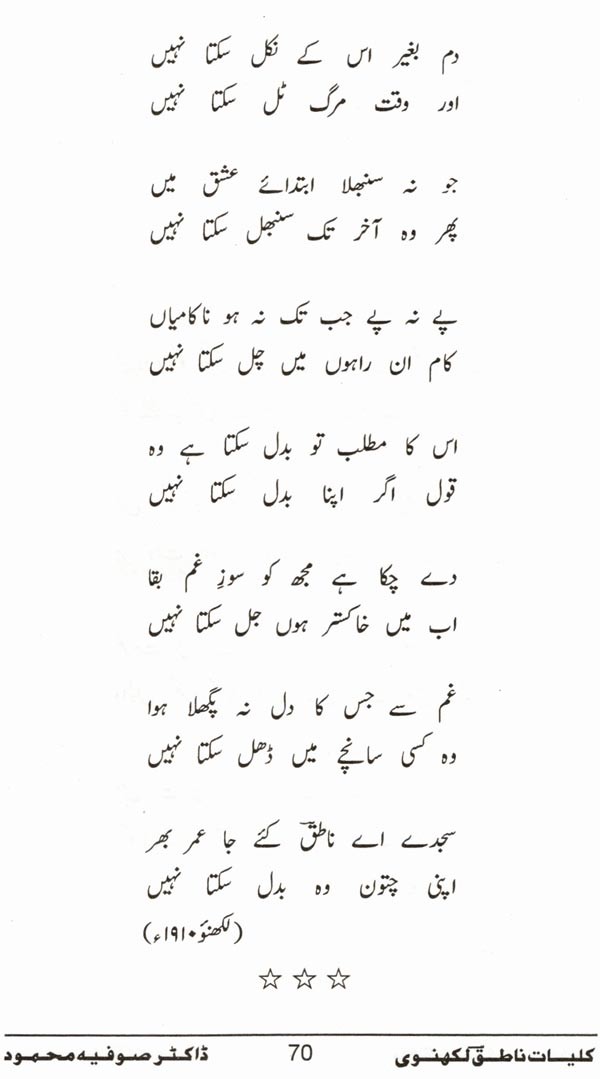 دم بغیر اس کے نکل سکتا نہیں
اور وقت مرگ ٹل سکتا نہیں
جو نہ سنبھلا ابتدائے عشق میں
پھر وہ آخر تک سنبھل سکتا نہیں
پے نہ پے جب تک نہ ہو ناکامیاں
کام ان راہوں میں چل سکتا نہیں
اس کا مطلب تو بدل سکتا ہے وہ
قول اگر اپنا بدل سکتا نہیں
دے چکا ہے مجھ کو سوزِ غم بقا
اب میں خاکستر ہوں جل سکتا نہیں
غم سے جس کا دل نہ پگھلا ہوا
وہ کسی سانچے میں ڈھل سکتا نہیں
سجدے اے ناطقؔ کئے جا عمر بھر
اپنی چتون وہ بدل سکتا نہیں
(لکھنؤ ۱۹۱۰ء)
☆ ☆ ☆
کلیات ناطقؔ لکھنوی 70 ڈاکٹر صوفیہ محمود